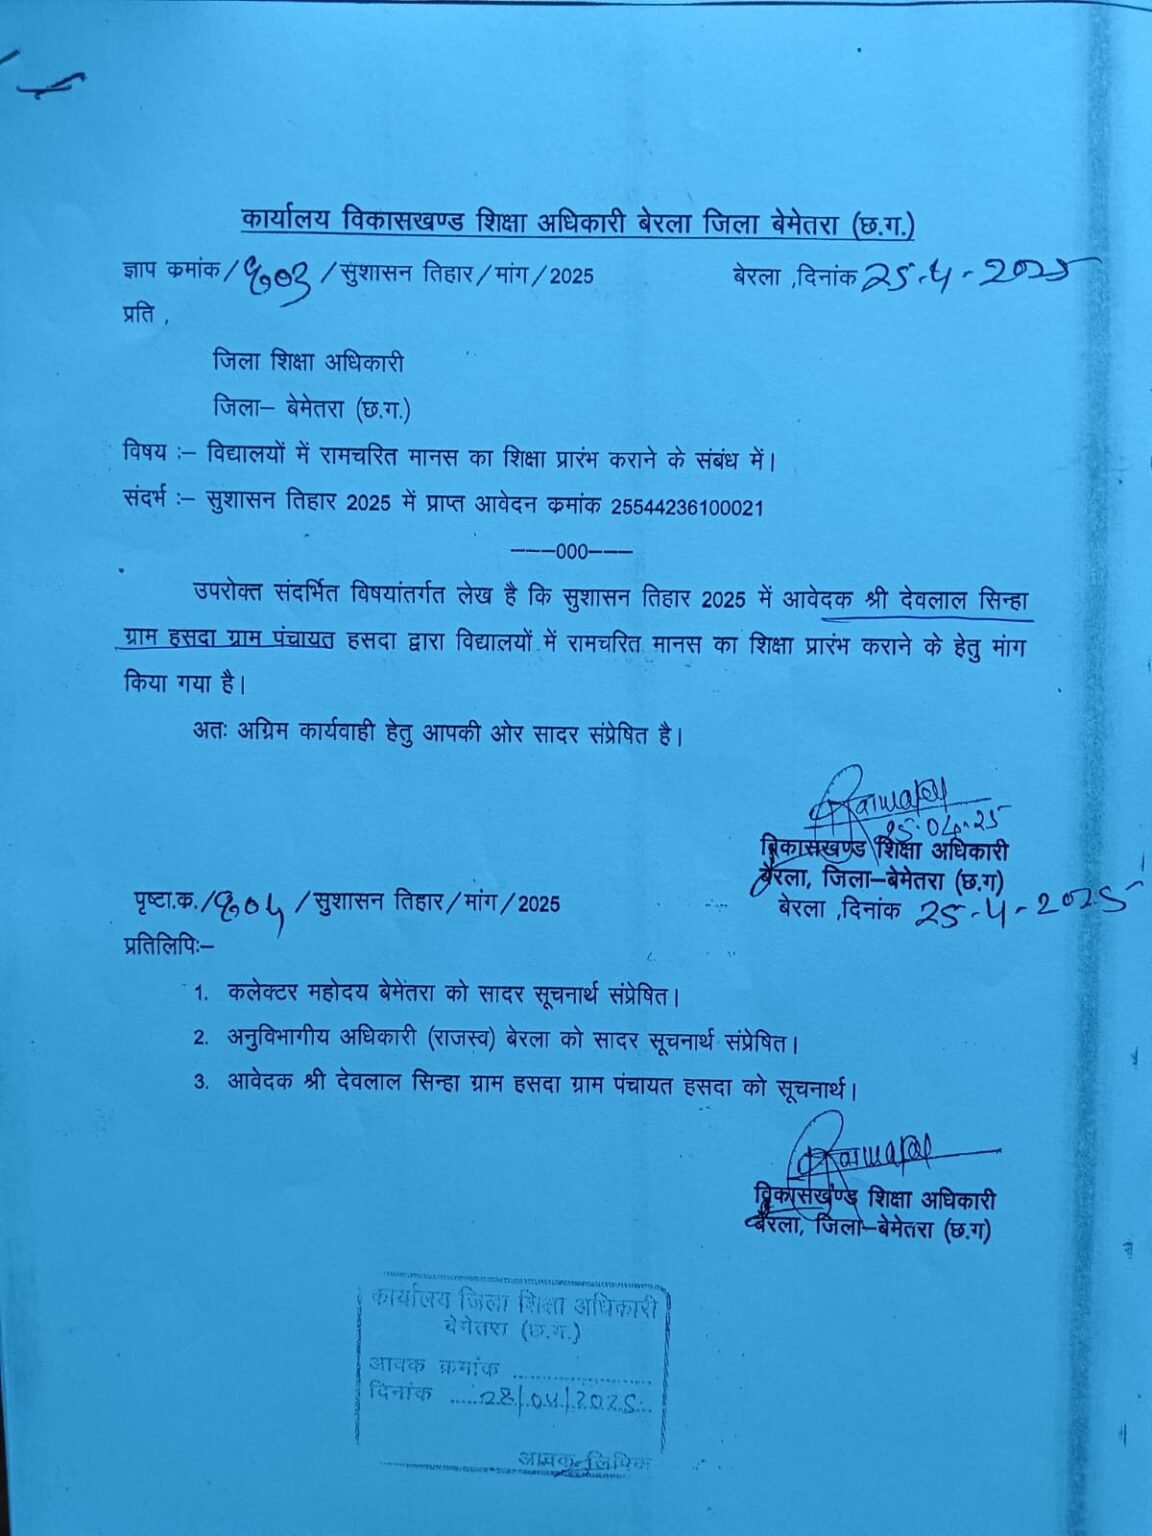 कार्यालय विकासखण्ड शिक्षा अधिकारी बेरला जिला बेमेतरा (छ.ग.)
ज्ञाप कमांक/903/सुशासन तिहार/मांग/2025 बेरला ,दिनांक 25-4-2025
प्रति ,
जिला शिक्षा अधिकारी
जिला– बेमेतरा (छ.ग.)
विषय :– विद्यालयों में रामचरित मानस का शिक्षा प्रारंभ कराने के संबंध में।
संदर्भ :– सुशासन तिहार 2025 में प्राप्त आवेदन कमांक 25544236100021
–––000–––
उपरोक्त संदर्भित विषयांतर्गत लेख है कि सुशासन तिहार 2025 में आवेदक श्री देवलाल सिन्हा
ग्राम हसदा ग्राम पंचायत हसदा द्वारा विद्यालयों में रामचरित मानस का शिक्षा प्रारंभ कराने के हेतु मांग
किया गया है।
अतः अग्रिम कार्यवाही हेतु आपकी ओर सादर संप्रेषित है।
25.04.25
विकासखण्ड शिक्षा अधिकारी
बेरला, जिला–बेमेतरा (छ.ग)
पृष्टा.क./904/सुशासन तिहार/मांग/2025 बेरला ,दिनांक 25-4-2025
प्रतिलिपिः–
1. कलेक्टर महोदय बेमेंतरा को सादर सूचनार्थ संप्रेषित।
2. अनुविभागीय अधिकारी (राजस्व) बेरला को सादर सूचनार्थ संप्रेषित।
3. आवेदक श्री देवलाल सिन्हा ग्राम हसदा ग्राम पंचायत हसदा को सूचनार्थ।
विकासखण्ड शिक्षा अधिकारी
बेरला, जिला–बेमेतरा (छ.ग)
कार्यालय जिला शिक्षा अधिकारी
बेमेतरा (छ.ग.)
आवक क्रमांक ..............
दिनांक .....28/04/2025..
आवक लिपिक